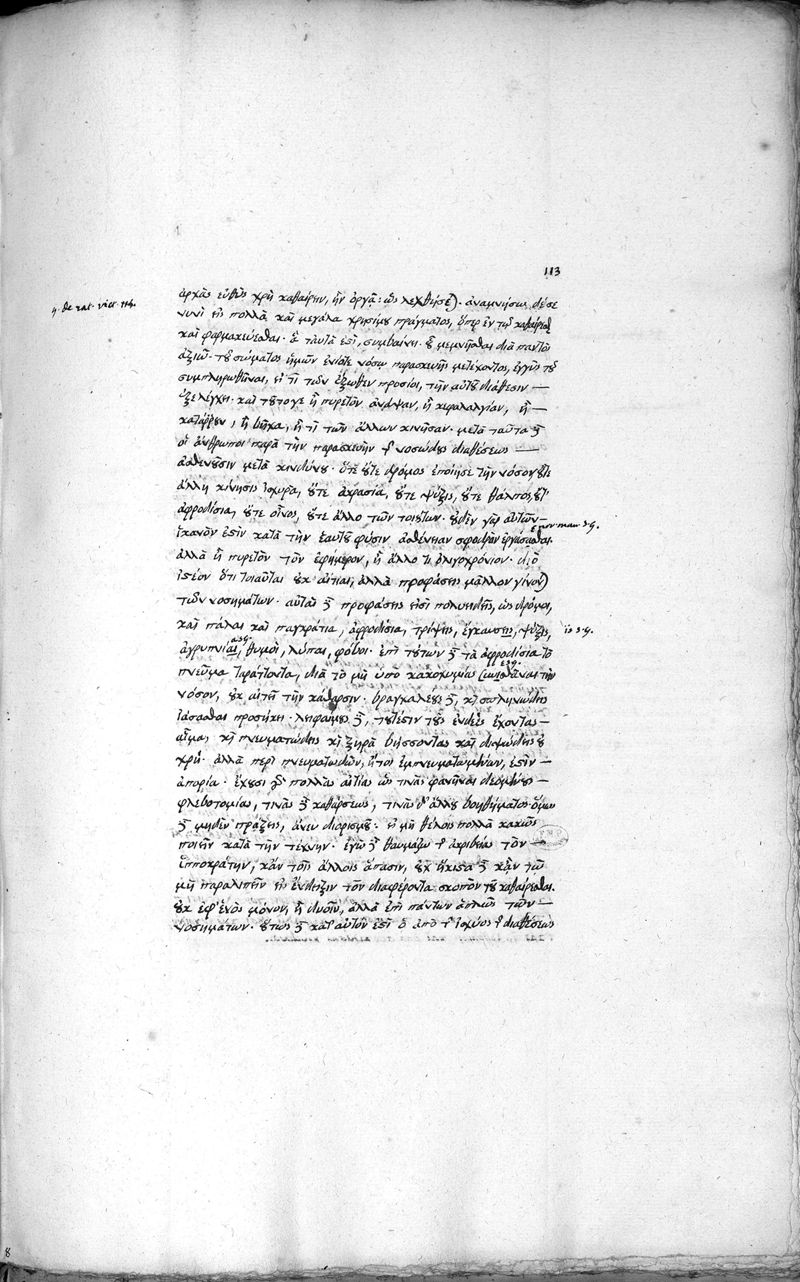 113
ἀρχὰς εὐθὺς χρὴ καθαίρειν, ἢν ὀργᾷ: ὡς λεχθήσε). ἀναμνήσω δέ σε
νυνὶ εἰς πολλὰ καὶ μεγάλα χρησίμου πράγματος, ὅπερ ἐν τῷ καθαίρεσθαι
καὶ φαρμακεύεσθαι. ταῦτά ἐστι, συμβαίνει. οὗ μεμνῆσθαι διὰ παντὸς
ἀξιῶ. τοῦ σώματος ἡμῶν ἐνίοτε νόσου παρασκευῆς μετέχοντος, ἐγγὺς τοῦ
συμπληρωθῆναι, εἴ τι τῶν ἔξωθεν προσίοι, τὴν αὐτοῦ διάθεσιν —
ἐξελέγχει. καὶ τοῦτό γε ἢ πυρετὸν ἀνάψαν, ἢ κεφαλαλγίαν, ἢ —
κατάρρουν, ἢ βῆχα, ἤ τι τῶν ἄλλων κινῆσαν. μετὰ ταῦτα δὲ
οἱ ἄνθρωποι παρὰ τὴν παρασκευὴν τῆς νοσώδους διαθέσεως —
ἀσθενοῦσιν μετὰ κινδύνου. οὔτε δρόμος ἐποίησε τὴν νόσον οὔτε
ἄλλη κίνησις ἰσχυρά, οὔτε ἀκρασία, οὔτε ψύξις, οὔτε θάλπος, οὔτ'
ἀφροδίσια, οὔτε οἶνος, οὔτε ἄλλο τῶν τοιούτων. οὐδὲν γὰρ αὐτῶν —
ἱκανόν ἐστιν κατὰ τὴν ἑαυτοῦ φύσιν ἀσθένειαν σφοδρὰν ἐργάσασθαι.
ἀλλὰ ἢ πυρετὸν τὸν ἐφήμερον, ἢ ἄλλο τι ὀλιγοχρόνιον. διὸ
ἰστέον ὅτι τοιαῦται οὐκ αἰτίαι, ἀλλὰ προφάσεις μᾶλλον γίνον)
τῶν νοσημάτων. αὗται δὲ προφάσεις εἰσὶ πολυειδεῖς, ὡς δρόμοι,
καὶ πάλαι καὶ παγκράτια, ἀφροδίσια, τρίψεις, ἐγκαύσεις, ψύξεις,
ἀγρυπνίαι, θυμοὶ, λύπαι, φόβοι. ἐπὶ τούτων δὲ τὰ ἀφροδίσια τὸ
πνεῦμα ταράττοντα, διὰ τὸ μὴ ὑπὸ κακοχυμίας συστῆναι τὴν
νόσον, οὐκ αἰτεῖ τὴν κάθαρσιν. βραγχαλέους δὲ, κὶ σπληνώδεις
ἰάσασθαι προσήκει. λειφαίμους δὲ, τουτέστιν τοὺς ἐνδεὲς ἔχοντας —
αἷμα, κὶ πνευματώδεις κὶ ξηρὰ βήσσοντας καὶ διψώδεις οὐ
χρή. ἀλλὰ περὶ πνευματωδῶν, ἤτοι ἐμπνευματωμένων, ἐστὶν —
ἀπορία. ἔχουσι γὰρ πολλὰς αἰτίας ὥς τινας φανῆναι δεομένους —
φλεβοτομίας, τινὰς δὲ καθάρσεως, τινὰς δ' ἄλλου βοηθήματος. ὅμως
δὲ μηδὲν πράξεις, ἄνευ διορισμοῦ. εἰ μὴ θέλοις πολλὰ κακῶς
ποιεῖν κατὰ τὴν τέχνην. ἐγὼ δὲ θαυμάζω τῆς ἀκριβείας τὸν —
ἱπποκράτην, κἀν τοῖς ἄλλοις ἅπασιν, οὐχ ἥκιστα δὲ κἀν τῷ
μὴ παραλιπεῖν εἰς ἔνδειξιν τὸν διαφέροντα σκοπὸν τοῦ καθαίρεσθαι.
οὐκ ἐφ' ἑνὸς μόνου, ἢ δυοῖν, ἀλλὰ ἐπὶ πάντων ἁπλῶς τῶν —
νοσημάτων. οὕτως δὲ κατ' αὐτὸν ἐστὶ ὁ ἀπὸ τῆς ἰσχύος τῆς διαθέσεως